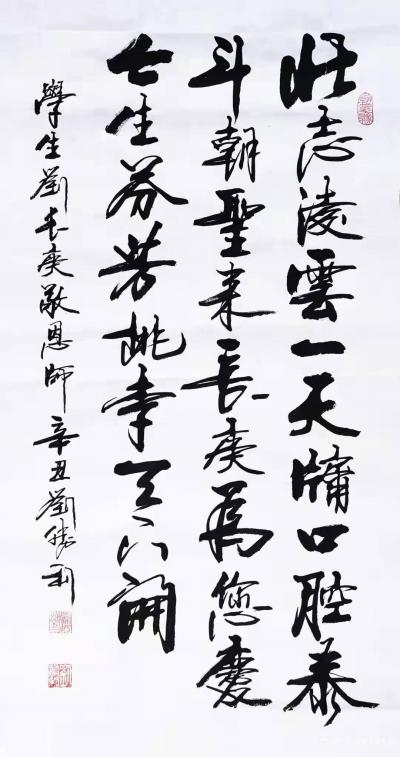 壯志凌雲一天牖口腔泰
斗朝聖來長庚為您慶
七生芬芳桃李天下開
學生劉長庚敬恩師 辛丑劉勝利